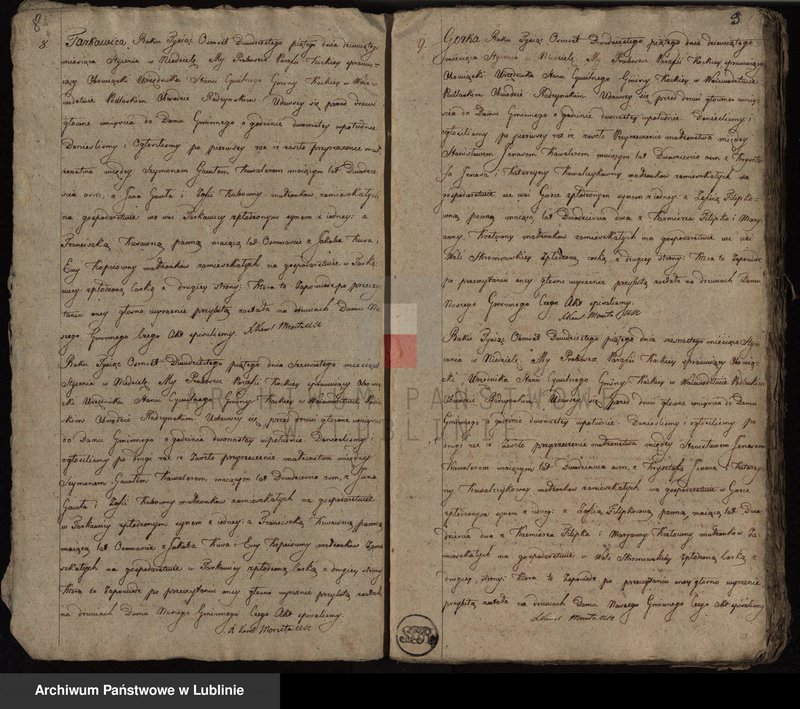 8
8. Parkawica, Roku Tysiąc Ośmset Dwudziestego piątego dnia dziewiątego
miesiąca Stycznia w Niedzielę, My Proboszcz Parafii Kockiey sprawuią-
cy Obowiązki Urzędnika Stanu Cywilnego Gminy Kockiey w Woie-
wództwie Podlaskim Obwodzie Radzynskim Udawszy się przed drzwi
głowne weyscia do Domu Gminnego o godzinie dwunastey wpołudnie.
Donieslismy i Ogłosilismy po pierwszy raz iż zaszło przyrzeczenie mał-
żenstwa między Szymonem Gawłem Kawalerem maiącym lat Dwadzie-
scia osm, z Jana Gawła i Zofii małżonkow zamieszkałych
na gospodarstwie we wsi Parkawicy spłodzonym synem z iedney: a
Franciszką panną maiącą lat Ośmnaście z Jakóba i
Ewy małżonkow zamieszkałych na gospodarstwie w Parka-
wicy spłodzoną Corką z drugiey strony. Która to Zapowiedz po przeczy-
taniu oney głosno wyraznie przybitą została na drzwiach Domu Na-
szego Gminnego Czego Akt spisaliśmy.
Roku Tysiąc Ośmset Dwudziestego piątego dnia Szesnastego miesiąca
Stycznia w Niedzielę My Proboszcz Parafii Kockiey sprawuiący Obowią-
zki Urzędnika Stanu Cywilnego Gminy Kockiey w Woiewództwie Podla-
skim Obwodzie Radzynskim Udawszy się przed drzwi głowne weyscia
do Domu Gminnego o godzinie dwunastey wpołudnie. Donieslismy i
ogłosilismy po drugi raz iż Zaszło przyrzeczenie małżenstwa między
Szymonem Gawłem Kawalerem maiącym lat Dwadziescia osm, z Jana
Gawła i Zofii małżonkow zamieszkałych na gospodarstwie
w Parkawicy spłodzonym synem z iedney: a Franciszką panną
maiącą lat Ośmnaście z Jakóba i Ewy małżonkow Zamie-
szkałych na gospodarstwie w Parkawicy spłodzoną Corką z drugiey strony.
Która to Zapowiedz po przeczytaniu oney głosno wyraznie przybitą została
na drzwiach Domu Naszego Gminnego Czego Akt spisaliśmy.
9. Gorka Roku Tysiąc Ośmset Dwudziestego piątego dnia dziewiątego
miesiąca Stycznia w Niedzielę My Proboszcz Parafii Kockiey sprawuiący
Obowiązki Urzędnika Stanu Cywilnego Gminy Kockiey w Woiewództwie
Podlaskim Obwodzie Radzynskim Udawszy się przed drzwi głowne wey-
scia do Domu Gminnego o godzinie dwunastey wpołudnie. Donieslismy i
ogłosilismy po pierwszy raz iż zaszło Przyrzeczenie małżenstwa między
Stanisławem Kawalerem maiącym lat Dwadziescia osm, z Krzyszto-
fa i Katarzyny małżonkow zamieszkałych na
gospodarstwie we wsi Gorce spłodzonym synem z iedney: a Zofią
panną maiącą lat Dwadziescia dwa z Kazmierza Filipka i Mary-
anny małżonkow zamieszkałych na gospodarstwie we wsi
Woli Skromowskiey spłodzoną corką z drugiey strony: Która to Zapowiedz
po przeczytaniu oney głosno wyraznie przybitą została na drzwiach Domu
Naszego Gminnego Czego Akt spisaliśmy.
Roku Tysiąc Ośmset Dwudziestego piątego dnia szesnastego miesiąca Sty-
cznia w Niedzielę, My Proboszcz Parafii Kockiey sprawuiący Obowią-
zki Urzędnika Stanu Cywilnego Gminy Kockiey w Woiewództwie Podlaskim
Obwodzie Radzynskim, Udawszy się przed drzwi głowne weyscia do Domu
Gminnego o godzinie dwunastey wpołudnie. Donieslismy i ogłosilismy po
drugi raz iż Zaszło przyrzeczenie małżenstwa między Stanisławem
Kawalerem maiącym lat Dwadziescia osm, z Krzysztofa i Katarzy-
ny małżonkow zamieszkałych na gospodarstwie w Gorce
spłodzonym synem z iedney: a Zofią panną, maiącą lat Dwa-
dziescia dwa z Kazmierza Filipka i Maryanny małżonkow Za-
mieszkałych na gospodarstwie w Woli Skromowskiey spłodzoną Corką z
drugiey strony: Która to Zapowiedz po przeczytaniu oney głosno wyraznie
przybitą została na drzwiach Domu Naszego Gminnego Czego Akt spisaliśmy
ARCHIWUM PAŃSTWOWE
W LUBLINIE
Archiwum Państwowe w Lublinie